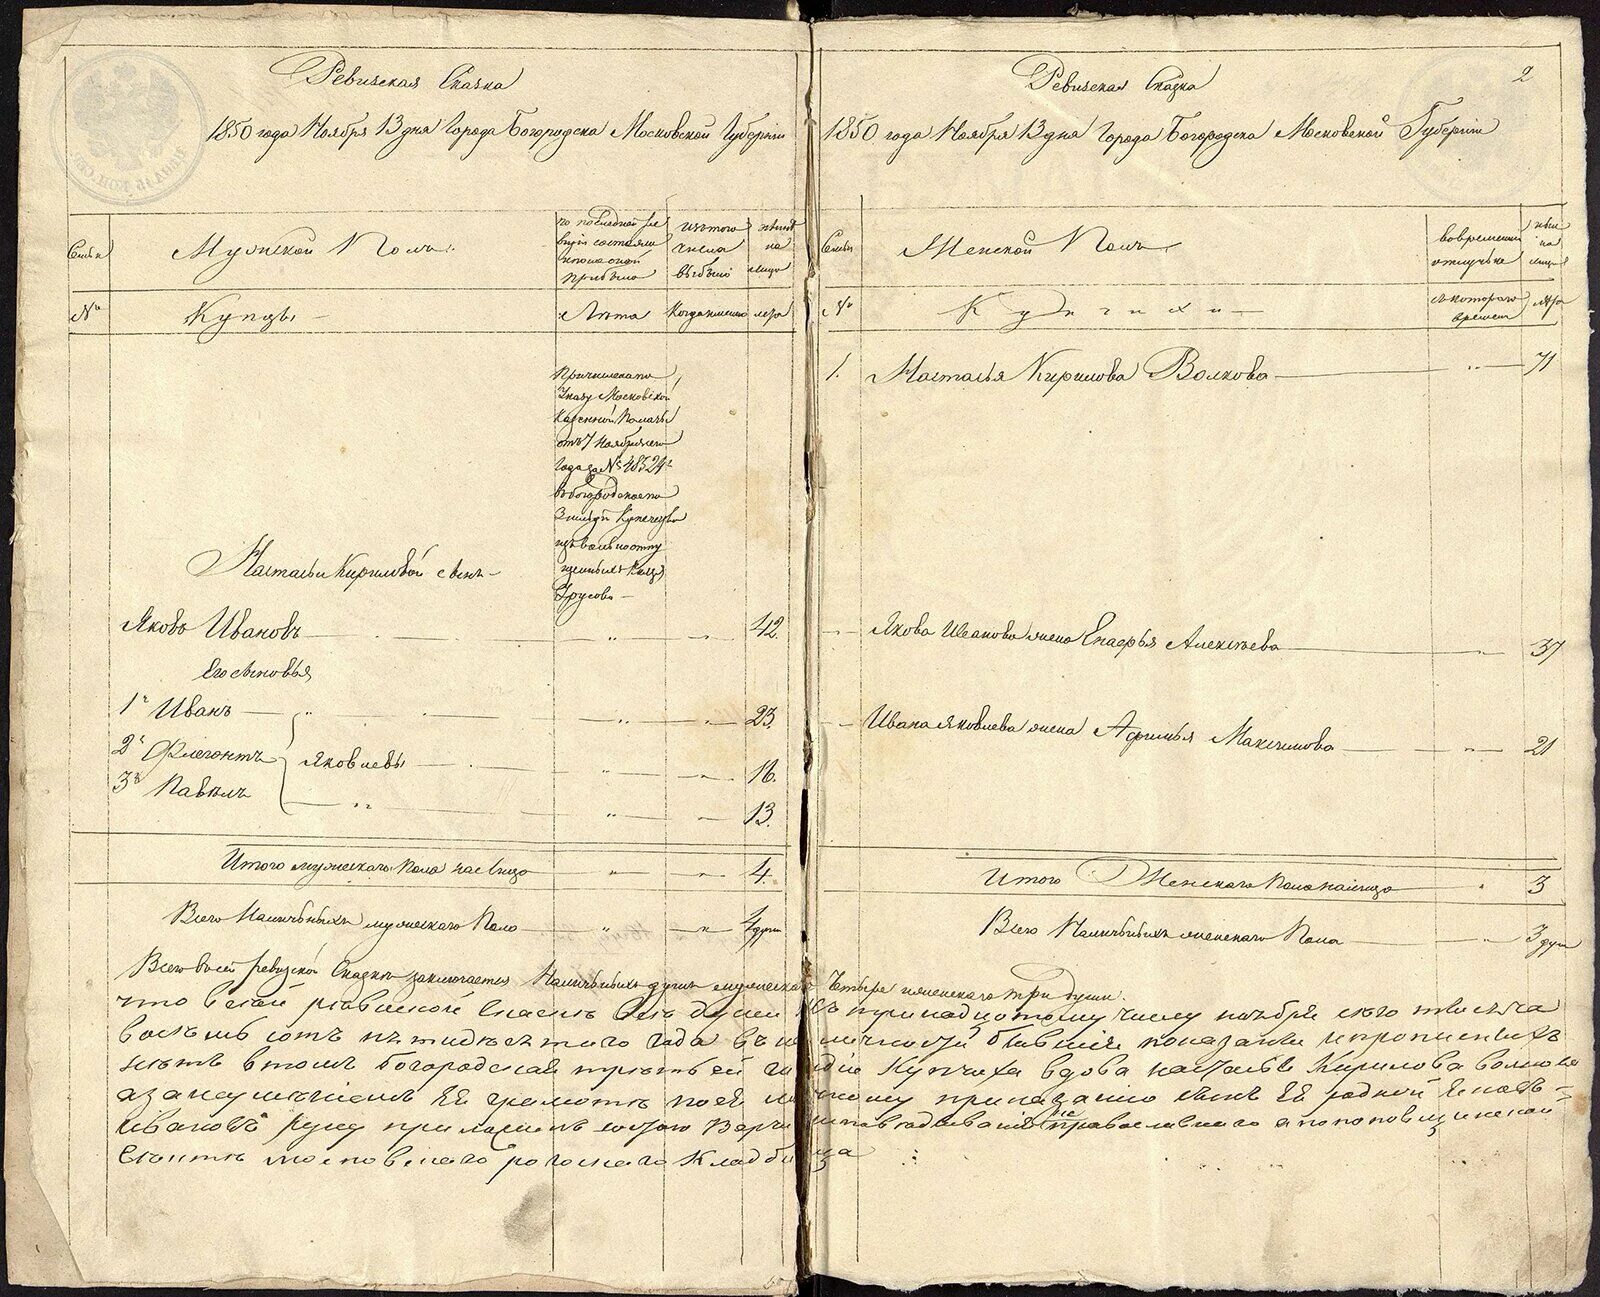 Ревижская Сказка
1850 года Ноября 13 дня Города Богородска Московской Губернии
Мужской Полъ
изъ того числа выбыло
на лицо
№
Купцы
Лета
Когда именно
лета
Причислена по
Указу Московской
Казенной Палаты
отъ 7 Ноября сего
года за № 48324
в богородское по
3 гильдии Купечество
изъ вольноотпу
щенныхъ Князя
Урусова
Настасьи Кириловой сынъ
Яковъ Ивановъ 42.
Его сыновья
1й Иванъ 23
2й Флегонтъ Яковлевы 16.
3й Павелъ 13.
Итого мужескаго Пола на лицо 4.
Всего Наличныхъ мужескаго Пола 4 души
Ревижская Сказка 2
1850 года Ноября 13 дня Города Богородска Московской Губернии
Женской Полъ
во временной отлучке
на лицо
№
Купчихи
съ котораго времени
лета
1. Настасья Кирилова Волкова 71
Якова Иванова жена Енафья Алексеева 37
Ивана Яковлева жена Афимья Максимова 21
Итого Женскаго Пола на лицо 3
Всего Наличныхъ женскаго Пола 3 души
Всего в сей ревизской Сказке заключается Наличныхъ душъ мужескаго Четыре женскаго три души.
что в сей ревиской скаске все души къ тринадцотому числу ноября сего тысеча
восемь сотъ петидесетого года в наличности бывшие показаны и прописныхъ
нетъ в томъ богородская третьей гилдии Купчиха вдова настасья Кирилова волкова
а за неумениемъ Ее грамоте по Ее личному приказанию сынъ Ее родной Яковъ
Ивановъ руку приложилъ
московскаго рогожскаго кладбища